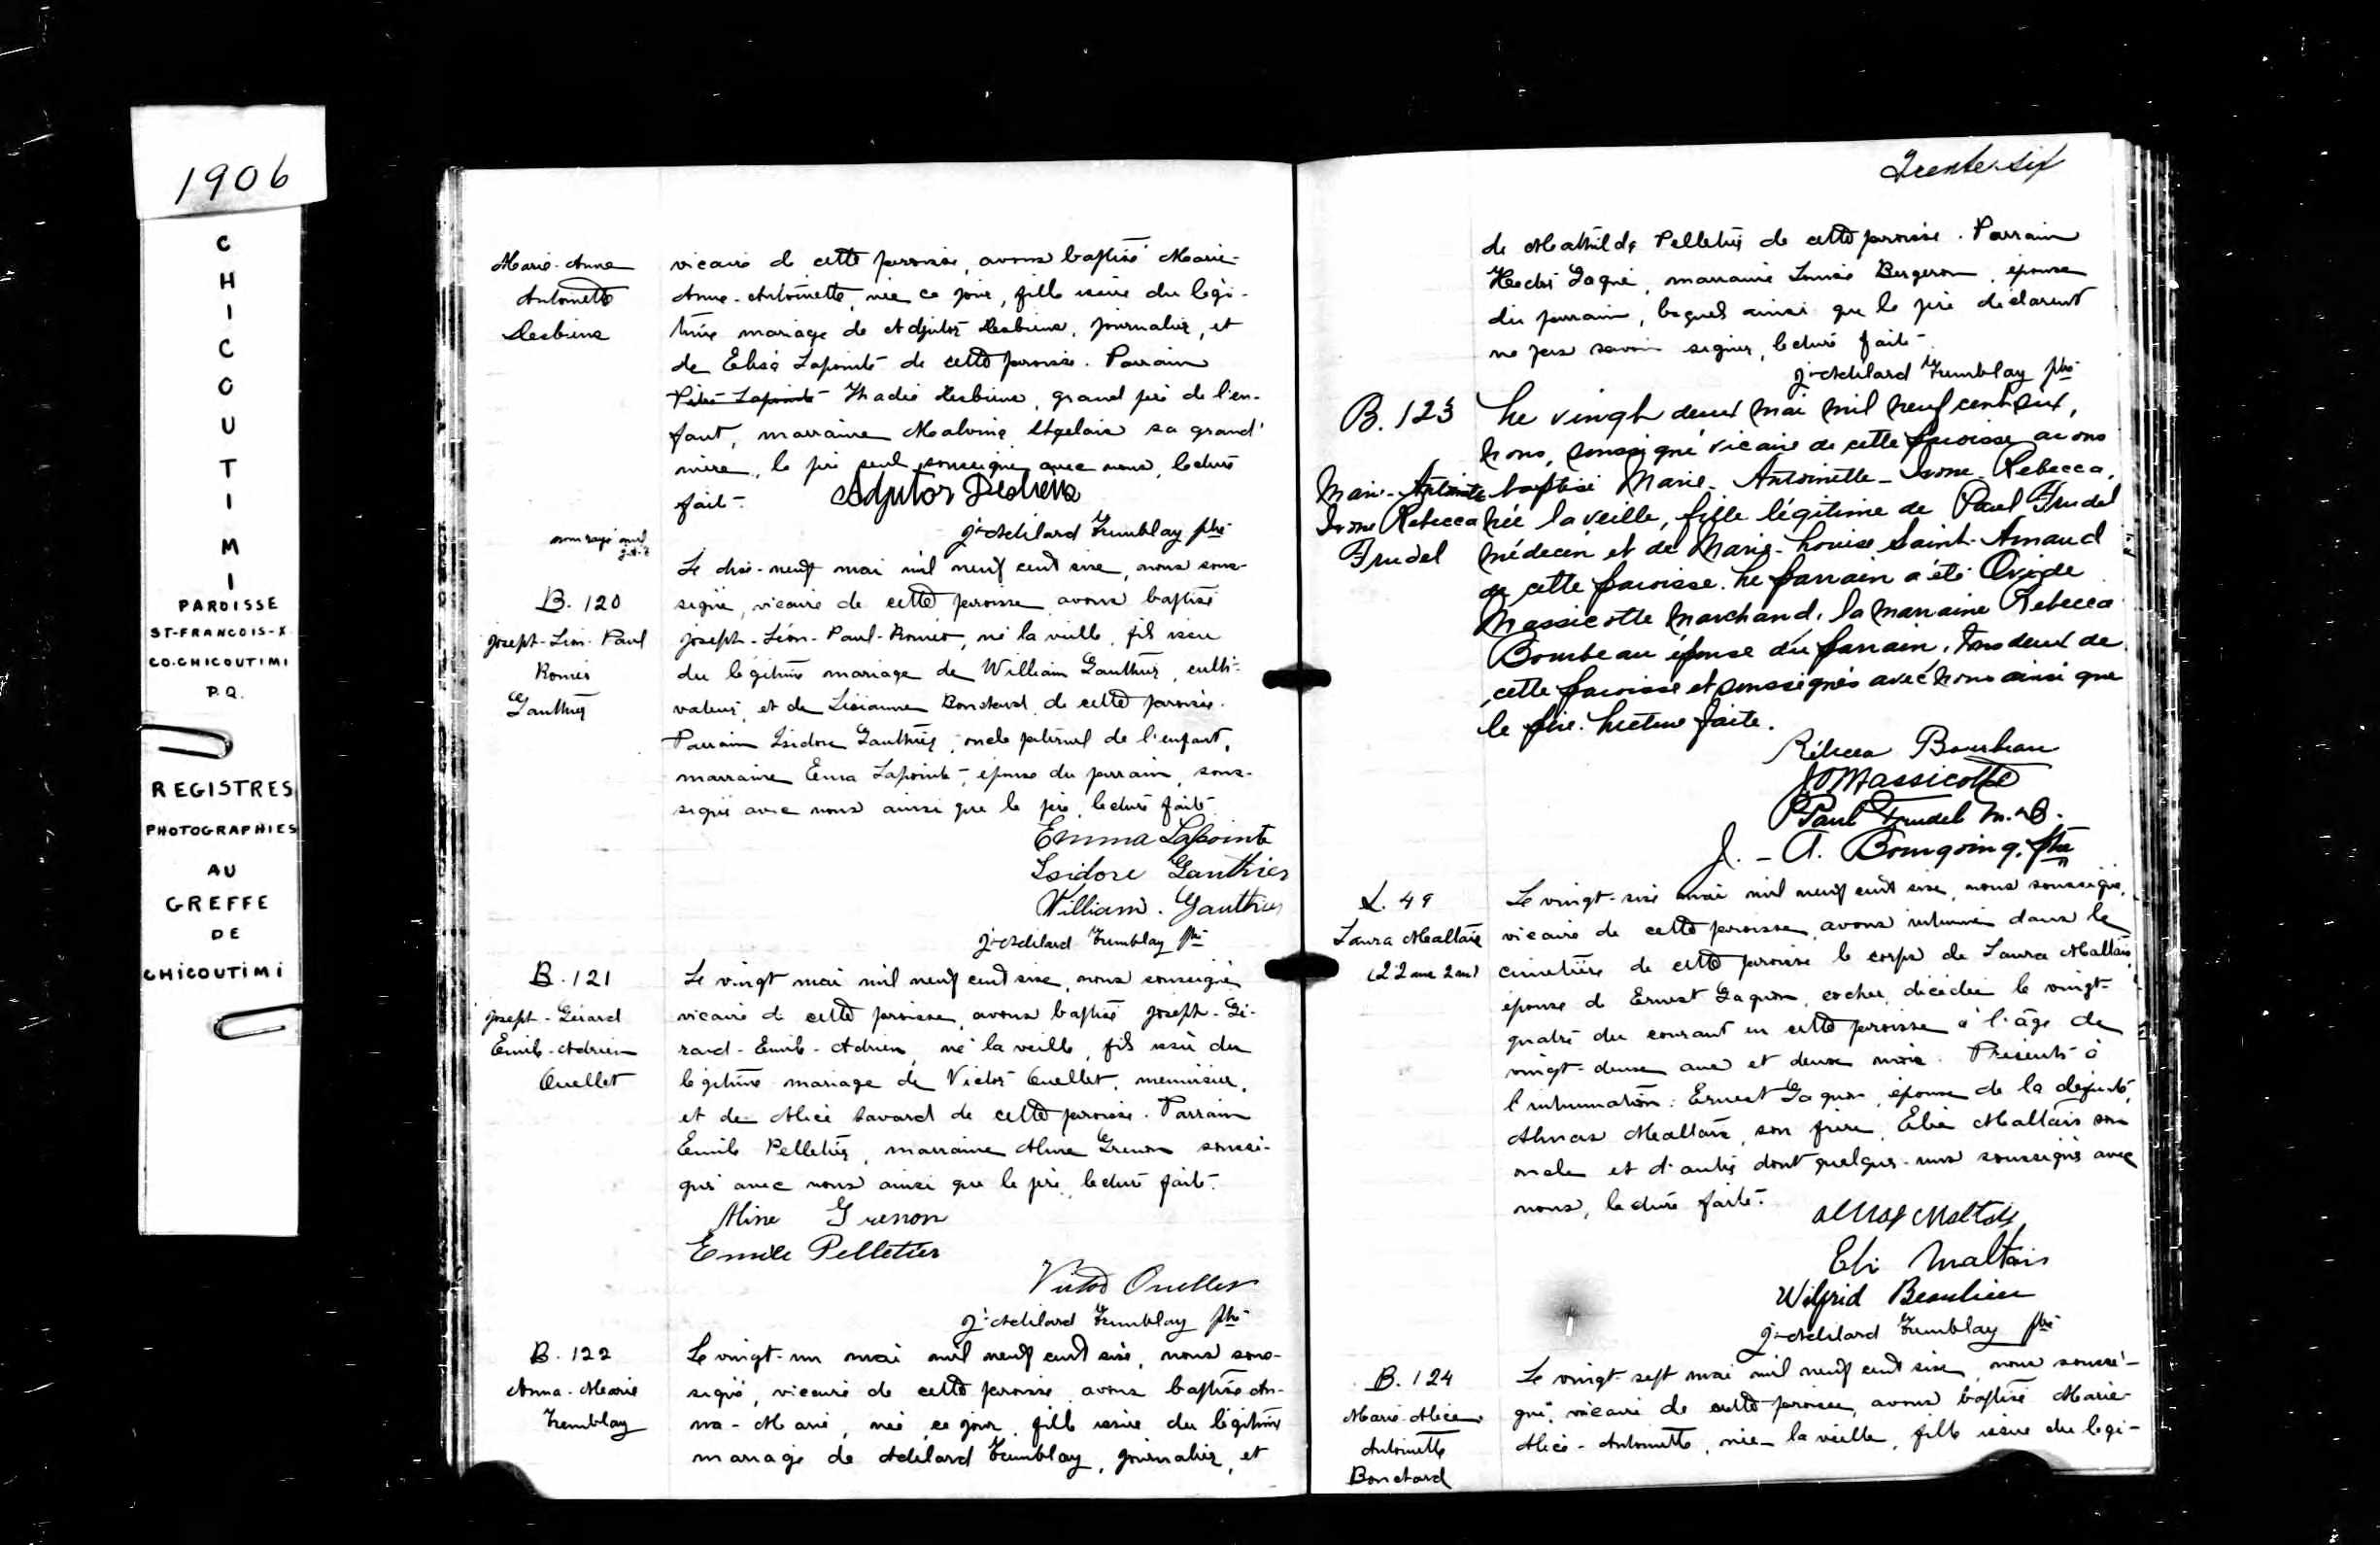 1906
CHICOUTIMI
PAROISSE
ST-FRANCOIS-X
CO.CHICOUTIMI
P.Q.
REGISTRES
PHOTOGRAPHIES
AU
GREFFE
DE
CHICOUTIMI
Marie-Anne
Antoinette
Desbiens
vicaire de cette paroisse, avons baptisé Marie-
Anne-Antoinette, née ce jour, fille issue du légi-
time mariage de Adjutor Desbiens, journalier, et
de Elisa Lapointe de cette paroisse. Parrain
Thadée Desbiens, grand père de l'en-
fant, marraine Malvina Gagelais sa grand'
mère, le père seul soussigné avec nous, lecture
faite.
Adjutor Desbiens
J-Adélard Tremblay ptre
B. 120
Joseph-Léon-Paul
Roméo
Gauthier
Le dix-neuf mai mil neuf cent six, nous sous-
signé, vicaire de cette paroisse avons baptisé
Joseph-Léon-Paul-Roméo, né la veille, fils issu
du légitime mariage de William Gauthier, culti-
vateur, et de Bouchard de cette paroisse.
Parrain Isidore Gauthier, oncle paternel de l'enfant,
marraine Emma Lapointe, épouse du parrain, sous-
signés avec nous ainsi que le père, lecture faite.
Emma Lapointe
Isidore Gauthier
William. Gauthier
J-Adélard Tremblay ptre
B. 121
Joseph-Gérard
Emile-Adrien
Ouellet
Le vingt mai mil neuf cent six, nous soussigné
vicaire de cette paroisse, avons baptisé Joseph-Gé-
rard-Emile-Adrien, né la veille, fils issu du
légitime mariage de Victor Ouellet, menuisier,
et de Alice Savard de cette paroisse. Parrain
Emile Pelletier, marraine Aline Grenon soussi-
gnés avec nous ainsi que le père, lecture faite.
Aline Grenon
Emile Pelletier
Victor Ouellet
J-Adélard Tremblay ptre
B. 122
Anna-Marie
Tremblay
Le vingt-un mai mil neuf cent six, nous sous-
signé, vicaire de cette paroisse avons baptisé An-
na-Marie, née ce jour, fille issue du légitime
mariage de Adélard Tremblay, journalier, et
Trente-six
de Mathilde Pelletier de cette paroisse. Parrain
Hector Gagné, marraine Louise Bergeron, épouse
du parrain, lesquels ainsi que le père déclarent
ne pas savoir signer, lecture faite.
J-Adélard Tremblay ptre
B. 123
Marie-Antoinette
Ivone Rebecca
Trudel
Le vingt deux mai mil neuf cent six,
nous, soussigné vicaire de cette paroisse avons
baptisé Marie-Antoinette-Ivone-Rebecca,
née la veille, fille légitime de Paul Trudel
médecin et de Marie-Louise Saint-Arnaud
de cette paroisse. Le parrain a été Ovide
Massicotte marchand, la marraine Rebecca
Bombeau épouse du parrain, tous deux de
cette paroisse et soussignés avec nous ainsi que
le père. Lecture faite.
Rébecca Bourbeau
JOMassicotte
Paul Trudel M.D.
J.-A. Bourgoing, ptre
S. 49
Laura Maltais
(22 ans 2 m)
Le vingt-six mai mil neuf cent six, nous soussigné,
vicaire de cette paroisse, avons inhumé dans le
cimetière de cette paroisse le corps de Laura Maltais,
épouse de Ernest Gagnon, cocher, décédée le vingt-
quatre du courant en cette paroisse à l'âge de
vingt-deux ans et deux mois. Présents à
l'inhumation: Ernest Gagnon, époux de la défunte,
Almas Maltais, son frère, Elie Maltais son
oncle et d'autres dont quelques-uns soussignés avec
nous, lecture faite.
Almas Maltais
Eli Maltais
Wilfrid Beaulieu
J-Adélard Tremblay ptre
B. 124
Marie-Alice
Antoinette
Bouchard
Le vingt-sept mai mil neuf cent six, nous soussi-
gné, vicaire de cette paroisse, avons baptisé Marie-
Alice-Antoinette, née la veille, fille issue du légi-